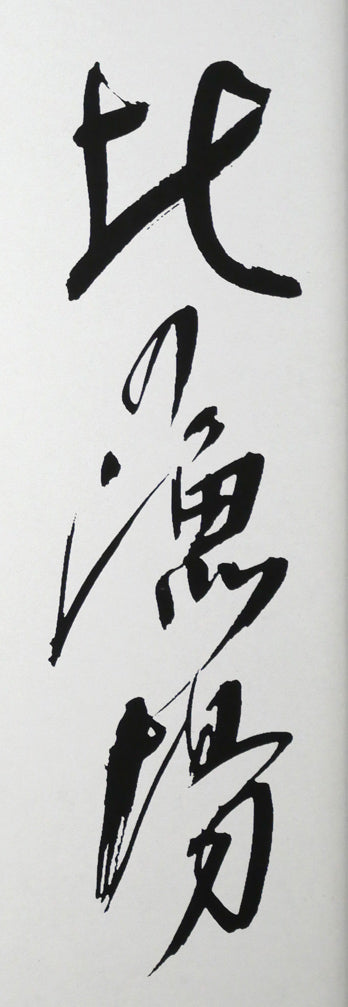 北の漁場